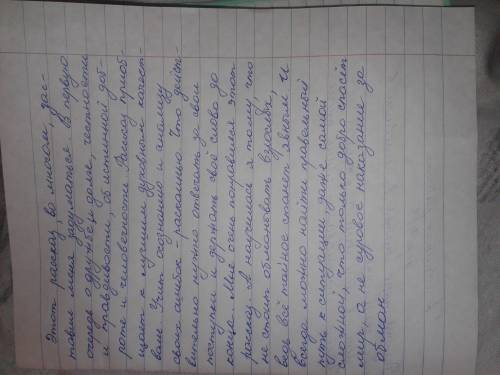 Этот рассказ, во многом, зас-
тавил меня задуматься в первую
очередь о дружбе и долге, честности
и правдивости, об истинной доб-
роте и человечности. Рассказ приоб-
щает к лучшим духовным качест-
вам. Учит осознанию и анализу
своих ошибок - рассказано что действ-
вительно нужно отвечать за свои
поступки и держать своё слово до
конца. Мне очень понравился этот
рассказ. Я научилась я тому, что
не стоит обманывать взрослых,
ведь всё тайное станет явным. И
всегда можно найти правильный
путь к ситуации, даже самой
сложной, что только добро спасёт
мир, а не суровое наказание за
обман.